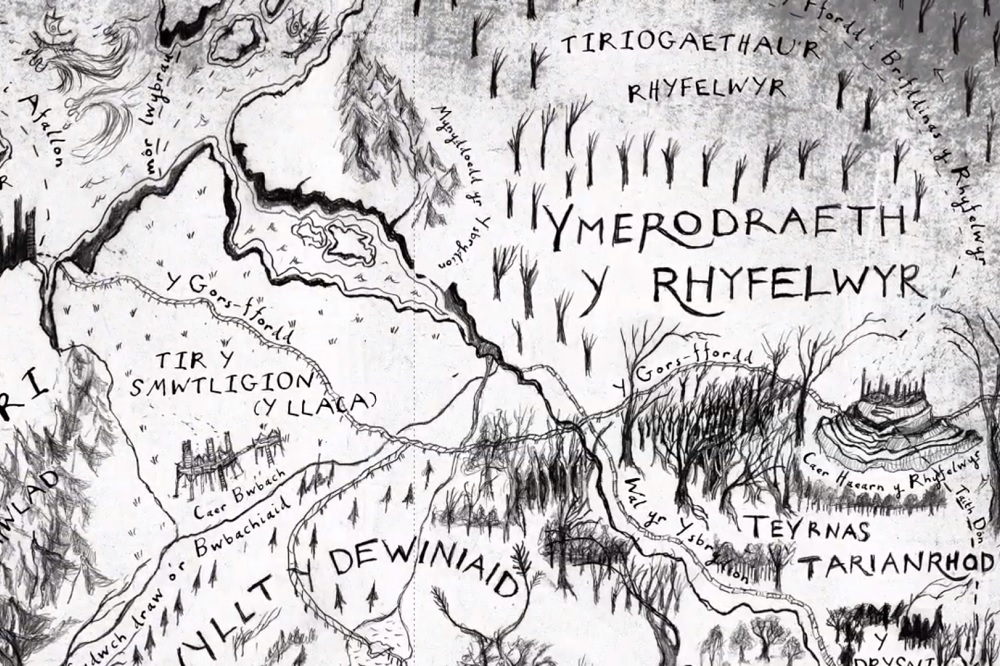 Y Ffordd i
Brifddinas y Rhyfelwyr
TIRIOGAETHAU'R
RHYFELWYR
Afallon
môr lwybrau
Mynyddoedd yr Ysbrydion
YMERODRAETH
Y RHYFELWYR
Y Gors-ffordd
TIR Y
SMWTLIGION
(Y LLACA)
Y Gors-ffordd
RI
WLAD
Caer Bwbach
Bwbachiaid
Caer Haearn y Rhyfelwyr
Taith
Wal yr Ysbrydion
TEYRNAS
TARIANRHOD
Y DEWINIAID
YLLT
draw o'r
Y